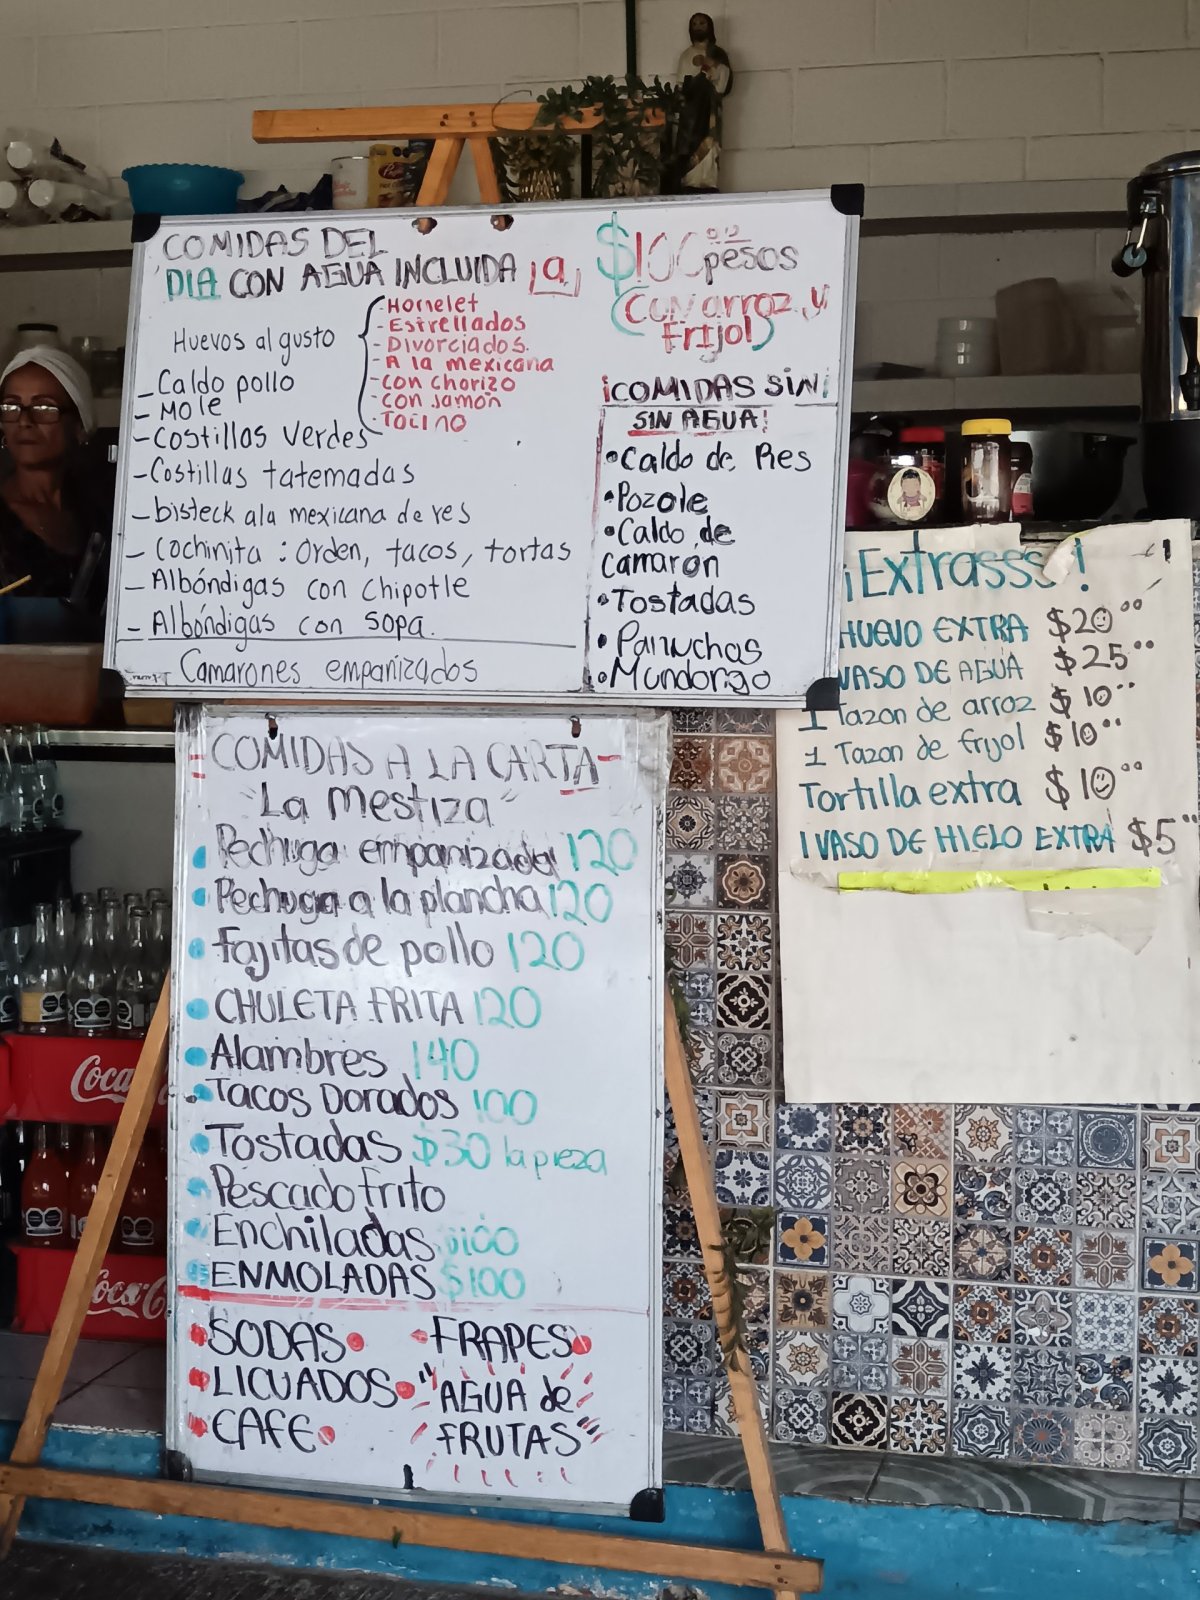 COMIDAS DEL
DIA CON AGUA INCLUIDA ¡a!
$100 00 pesos
(con arroz y
frijol)
Huevos al gusto
- Homelet
- Estrellados
- Divorciados.
- A la mexicana
- con chorizo
- con jamón
- Tocino
- Caldo pollo
- Mole
- Costillas verdes
- Costillas tatemadas
- bisteck ala mexicana de res
- Cochinita : Orden, tacos, tortas
- Albóndigas con chipotle
- Albóndigas con sopa.
Camarones empanizados
¡COMIDAS SIN!
SIN AGUA!
• Caldo de Res
• Pozole
• Caldo de
camaron
• Tostadas
• Panuchos
• Mondongo
¡Extrasss!
HUEVO EXTRA $20 00
VASO DE AGUA $25 00
1 Tazon de arroz $10 00
1 Tazon de frijol $10 00
Tortilla extra $10 00
1 VASO DE HIELO EXTRA $5 00
COMIDAS A LA CARTA
"La Mestiza"
• Pechuga empanizada 120
• Pechuga a la plancha 120
• fajitas de pollo 120
• CHULETA FRITA 120
• Alambres 140
• Tacos Dorados 100
• Tostadas $30 la pieza
• Pescado frito
• Enchiladas $100
• ENMOLADAS $100
• SODAS •
• LICUADOS •
• CAFE •
- FRAPES •
"AGUA de
FRUTAS"
Coca
Coca-C